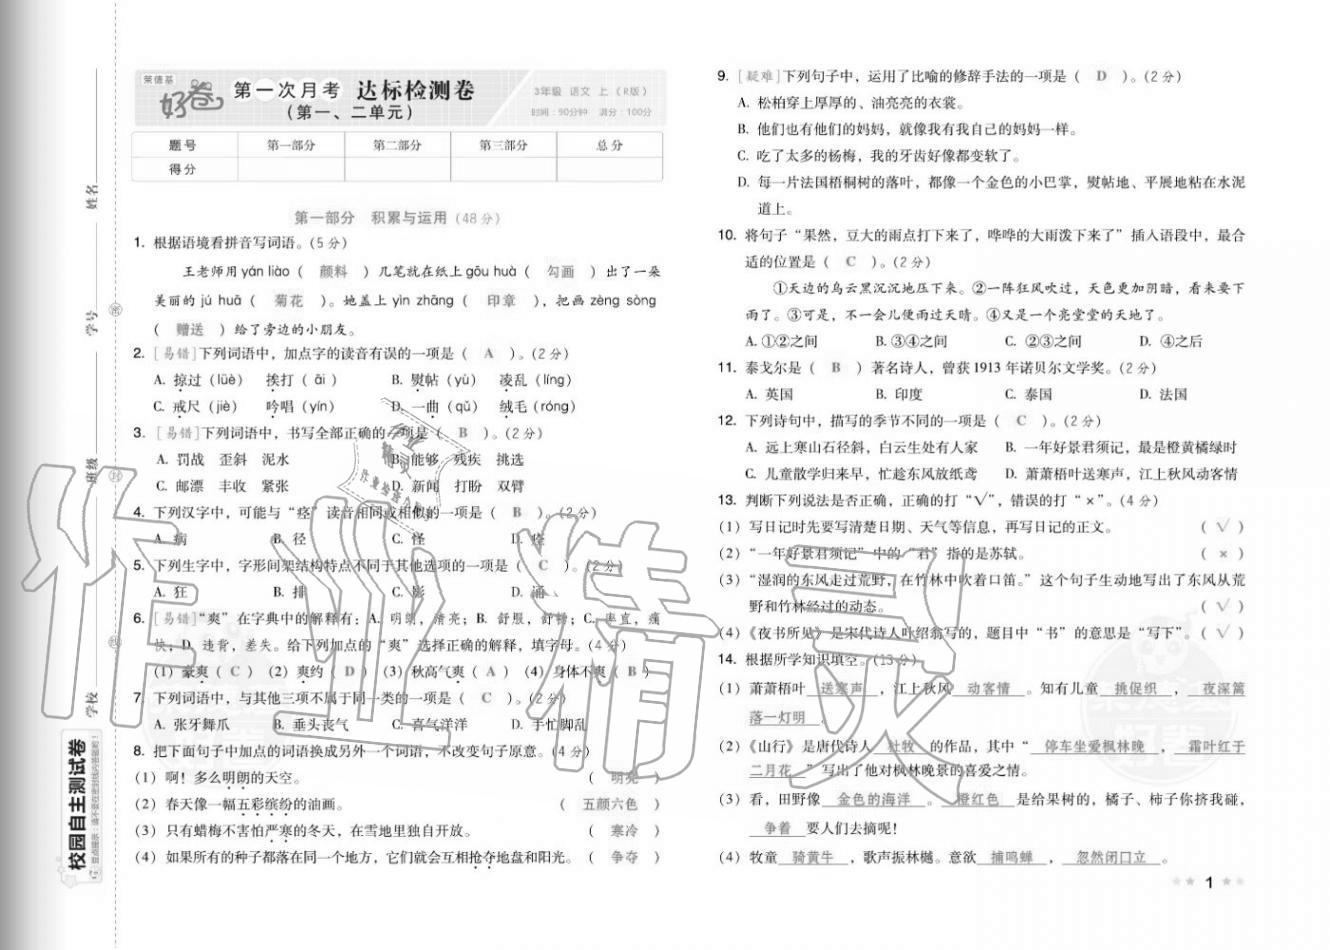 莱德基
好卷
第一次月考 达标检测卷
(第一、二单元)
3年级 语文 上(R版)
时间:90分钟 满分:100分
题号 第一部分 第二部分 第三部分 总分
得分
第一部分 积累与运用(48分)
1. 根据语境看拼音写词语。(5分)
王老师用yán liào( 颜料 )几笔就在纸上gōu huà( 勾画 )出了一朵
美丽的jú huā( 菊花 )。她盖上yìn zhāng( 印章 ),把画zèng sòng
( 赠送 )给了旁边的小朋友。
2. [易错]下列词语中,加点字的读音有误的一项是( A )。(2分)
A. 掠过(lüè) 挨打(āi) B. 熨帖(yù) 凌乱(líng)
C. 戒尺(jiè) 吟唱(yín) D. 一曲(qǔ) 绒毛(róng)
3. [易错]下列词语中,书写全部正确的一项是( B )。(2分)
A. 罚战 歪斜 泥水 B. 能够 残疾 挑选
C. 邮漂 丰收 紧张 D. 新闻 打盼 双臂
4. 下列汉字中,可能与“痉”读音相同或相似的一项是( B )。(2分)
A. 病 B. 径 C. 怪 D. 痊
5. 下列生字中,字形间架结构特点不同于其他选项的一项是( C )。(2分)
A. 狂 B. 排 C. 影 D. 涌
6. [易错]“爽”在字典中的解释有:A. 明朗,清亮;B. 舒服,舒畅;C. 率直,痛
快;D. 违背,差失。给下列加点的“爽”选择正确的解释,填字母。(4分)
(1) 豪爽( C ) (2) 爽约( D ) (3) 秋高气爽( A ) (4) 身体不爽( B )
7. 下列词语中,与其他三项不属于同一类的一项是( C )。(2分)
A. 张牙舞爪 B. 垂头丧气 C. 喜气洋洋 D. 手忙脚乱
8. 把下面句子中加点的词语换成另外一个词语,不改变句子原意。(4分)
(1) 啊!多么明朗的天空。 ( 明亮 )
(2) 春天像一幅五彩缤纷的油画。 ( 五颜六色 )
(3) 只有蜡梅不害怕严寒的冬天,在雪地里独自开放。 ( 寒冷 )
(4) 如果所有的种子都落在同一个地方,它们就会互相抢夺地盘和阳光。 ( 争夺 )
9. [疑难]下列句子中,运用了比喻的修辞手法的一项是( D )。(2分)
A. 松柏穿上厚厚的、油亮亮的衣裳。
B. 他们也有他们的妈妈,就像我有我自己的妈妈一样。
C. 吃了太多的杨梅,我的牙齿好像都变软了。
D. 每一片法国梧桐树的落叶,都像一个金色的小巴掌,熨帖地、平展地粘在水泥
道上。
10. 将句子“果然,豆大的雨点打下来了,哗哗的大雨泼下来了”插入语段中,最合
适的位置是( C )。(2分)
①天边的乌云黑沉沉地压下来。②一阵狂风吹过,天色更加阴暗,看来要下
雨了。③可是,不一会儿便雨过天晴。④又是一个亮堂堂的天地了。
A. ①②之间 B. ③④之间 C. ②③之间 D. ④之后
11. 泰戈尔是( B )著名诗人,曾获1913年诺贝尔文学奖。(2分)
A. 英国 B. 印度 C. 泰国 D. 法国
12. 下列诗句中,描写的季节不同的一项是( C )。(2分)
A. 远上寒山石径斜,白云生处有人家 B. 一年好景君须记,最是橙黄橘绿时
C. 儿童散学归来早,忙趁东风放纸鸢 D. 萧萧梧叶送寒声,江上秋风动客情
13. 判断下列说法是否正确,正确的打“√”,错误的打“×”。(4分)
(1) 写日记时先要写清楚日期、天气等信息,再写日记的正文。 ( √ )
(2)“一年好景君须记”中的“君”指的是苏轼。 ( × )
(3)“湿润的东风走过荒野,在竹林中吹着口笛。”这个句子生动地写出了东风从荒
野和竹林经过的动态。 ( √ )
(4)《夜书所见》是宋代诗人叶绍翁写的,题目中“书”的意思是“写下”。 ( √ )
14. 根据所学知识填空。(13分)
(1) 萧萧梧叶 送寒声 ,江上秋风 动客情 。知有儿童 挑促织 , 夜深篱
落一灯明 。
(2)《山行》是唐代诗人 杜牧 的作品,其中“ 停车坐爱枫林晚 , 霜叶红于
二月花 ”写出了他对枫林晚景的喜爱之情。
(3) 看,田野像 金色的海洋 。 橙红色 是给果树的,橘子、柿子你挤我碰,
争着 要人们去摘呢!
(4) 牧童 骑黄牛 ,歌声振林樾。意欲 捕鸣蝉 , 忽然闭口立 。
1
姓名
学号
班级
学校
密
封
线
校园自主测试卷
作业精灵